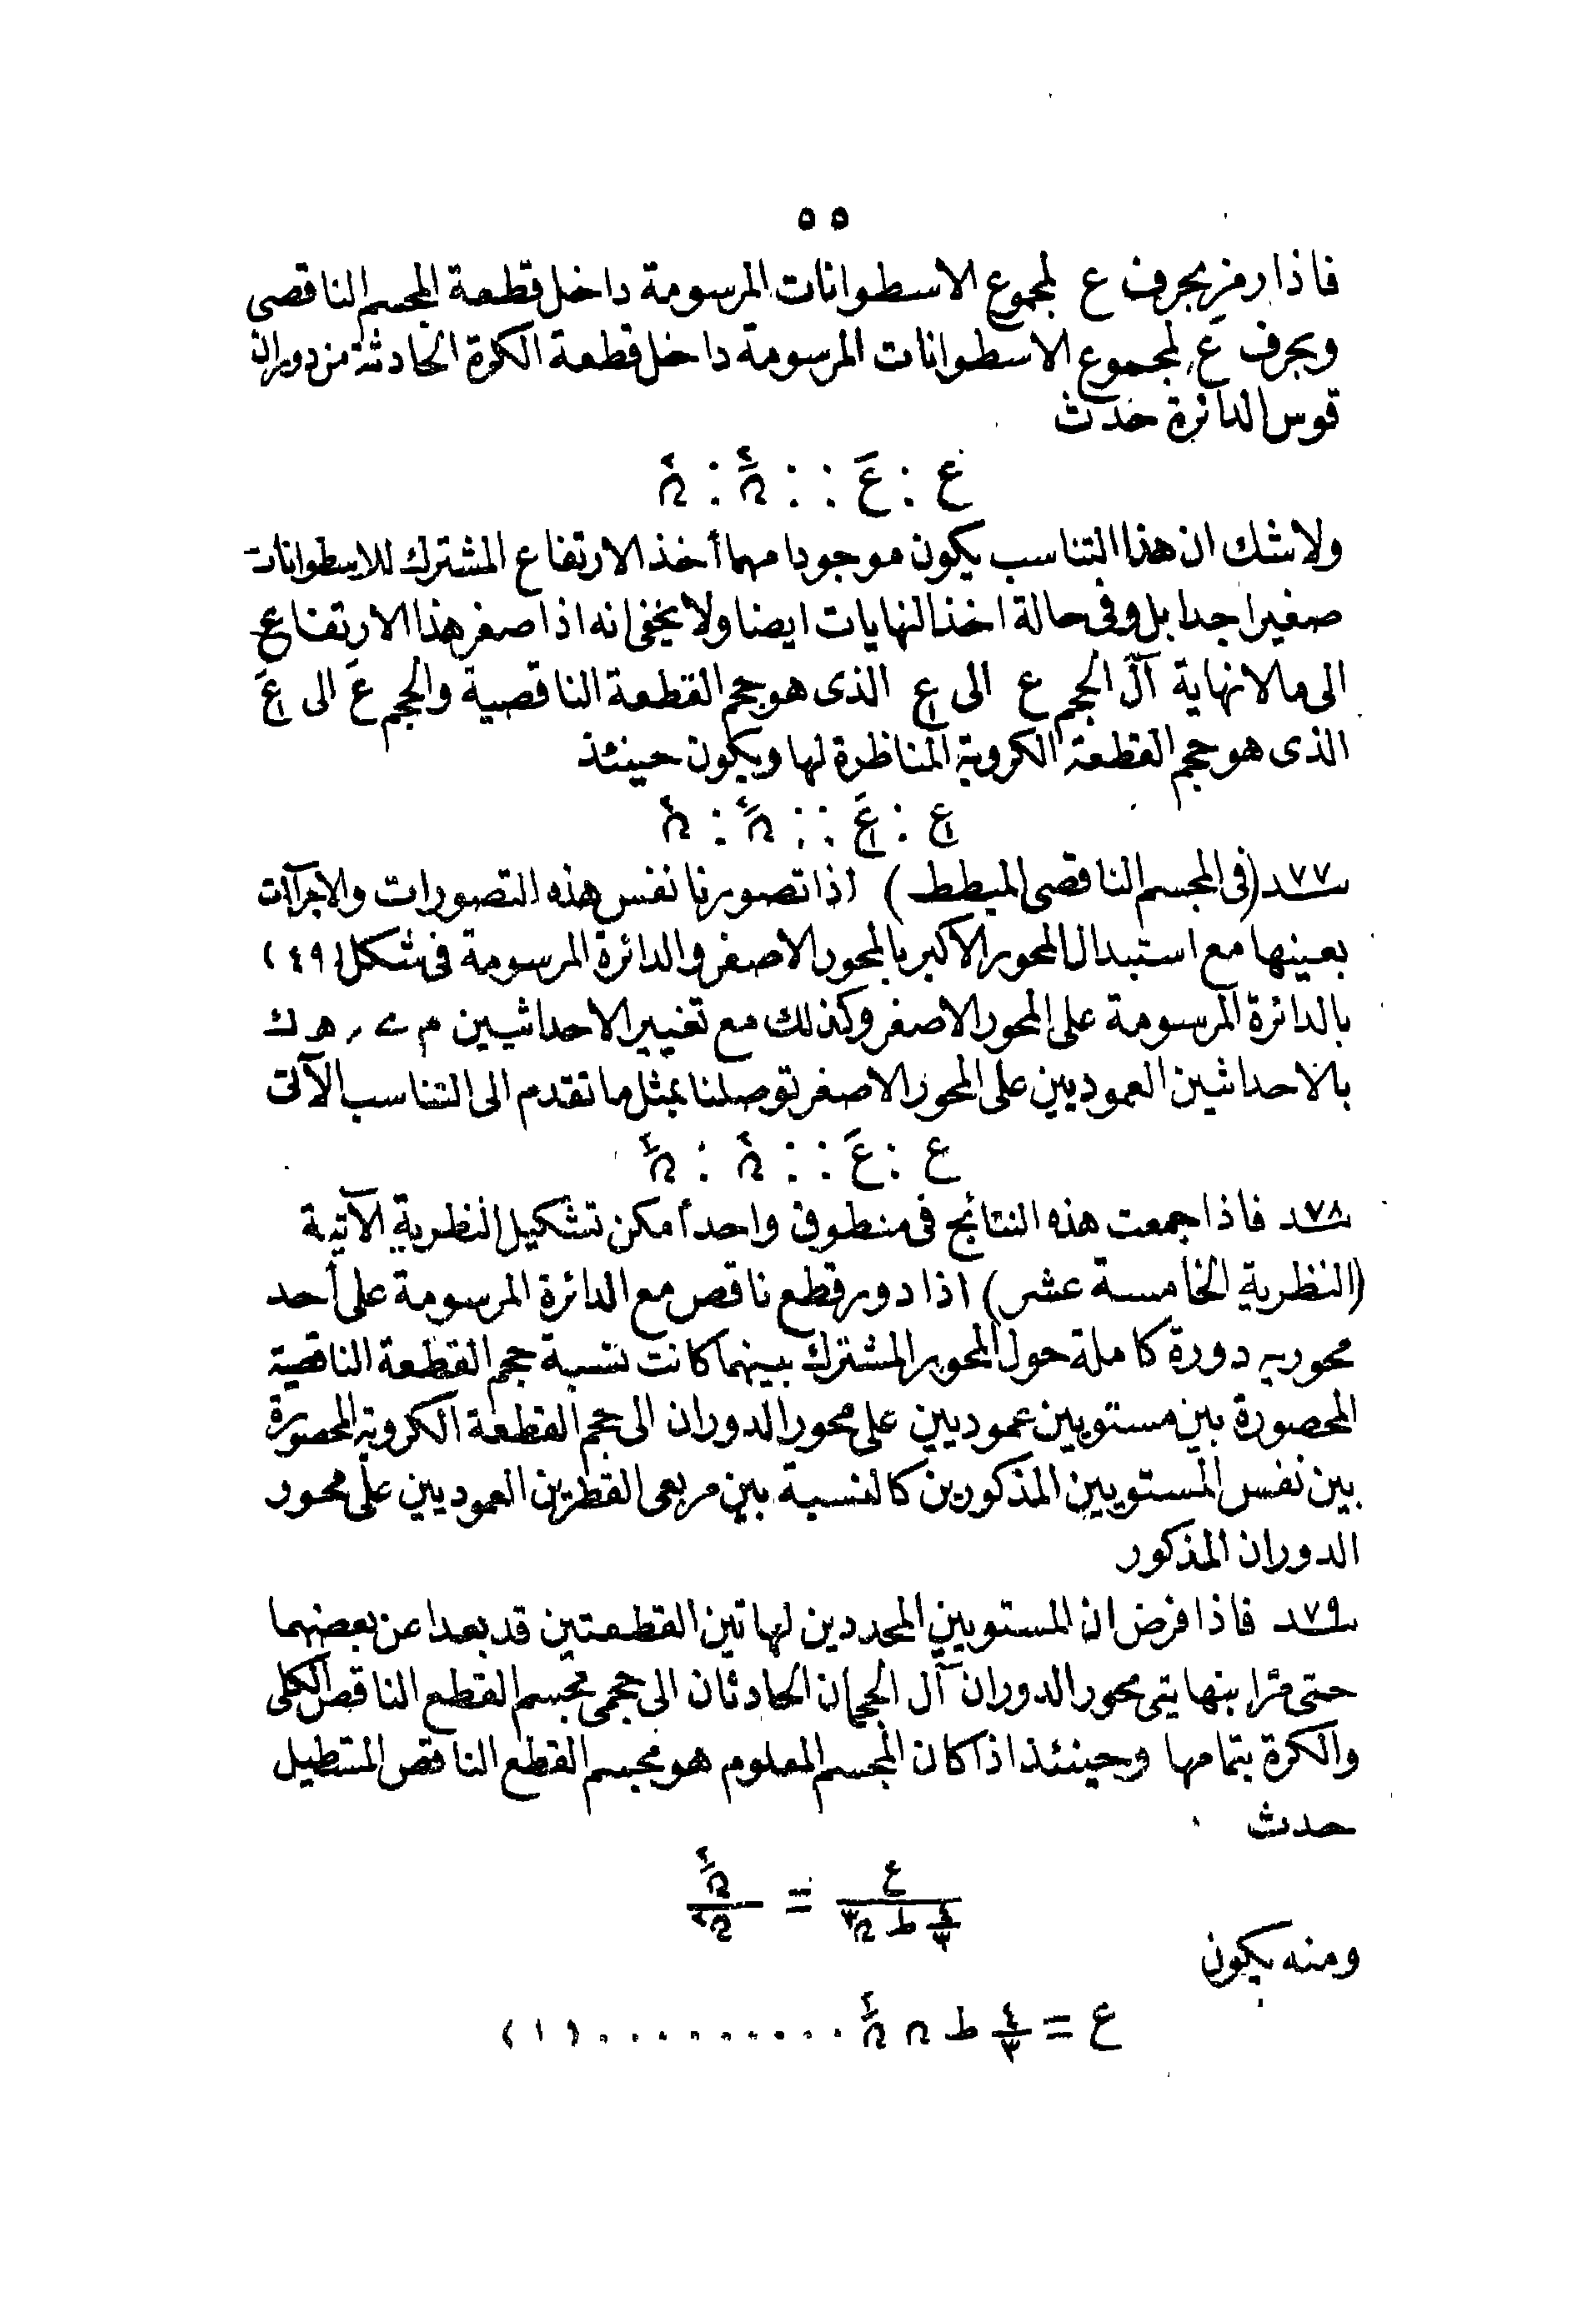 ٥٥
فاذا رمز بحرف ع لمجموع الاسطوانات المرسومة داخل قطعة المجسم الناقصى
وبحرف عَ لمجموع الاسطوانات المرسومة داخل قطعة الكرة الحادثة من دوران
قوس الدائرة حدث
ع : عَ :: نَ٢ : ن٢
ولاشك ان هذا التناسب يكون موجودا مهما أخذ الارتفاع المشترك للاسطوانات
صغيرا جدا بل وفى حالة اخذ النهايات ايضا ولا يخفى انه اذا صغر هذا الارتفاع
الى مالانهاية آل الحجم ع الى الذى هو حجم القطعة الناقصية والحجم عَ الى
الذى هو حجم القطعة الكروية المناظرة لها ويكون حينئذ
: :: نَ٢ : ن٢
٧٧ـد (فى المجسم الناقصى المبطط) اذا تصورنا نفس هذه التصورات والاجراآت
بعينها مع استبدال المحور الاكبر بالمحور الاصغر والدائرة المرسومة فى شكل (٤٩)
بالدائرة المرسومة على المحور الاصغر وكذلك مع تغيير الاحداثيين م ے ر هـ ك
بالاحداثيين العموديين على المحور الاصغر توصلنا بمثل ماتقدم الى التناسب الآتى
ع : عَ :: ن٢ : نَ٢
٧٨ـد فاذا جمعت هذه النتائج فى منطوق واحد أمكن تشكيل النظرية الآتية
(النظرية الخامسة عشر) اذا دور قطع ناقص مع الدائرة المرسومة على أحد
محوريه دورة كاملة حول المحور المشترك بينهما كانت نسبة حجم القطعة الناقصية
المحصورة بين مستويين عموديين على محور الدوران الى حجم القطعة الكروية المحصورة
بين نفس المستويين المذكورين كالنسبة بين مربعى القطرين العموديين على محور
الدوران المذكور
٧٩ـد فاذا فرض ان المستويين المحددين لهاتين القطعتين قد بعدا عن بعضهما
حتى مرّا بنهايتى محور الدوران آل الحجمان الحادثان الى حجمى مجسم القطع الناقص الكلى
والكرة بتمامها وحينئذ اذا كان المجسم المعلوم هو مجسم القطع الناقص المستطيل
حدث
ع / (٤/٣ ط ن٣) = نَ٢ / ن٢
ومنه يكون
ع = ٤/٣ ط ن نَ٢ .......... (١)